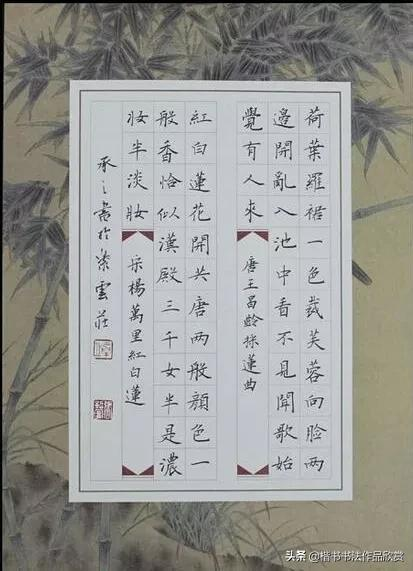 荷葉羅裙一色裁芙蓉向脸两
邊開亂入池中看不見聞歌始
覺有人來
唐王昌齡採蓮曲
紅白蓮花開共唐两般顏色一
般香恰似漢殿三千女半是濃
妝半淡妝
宋楊萬里紅白蓮
承之書於紫雲莊
头条 @楷书书法作品欣赏